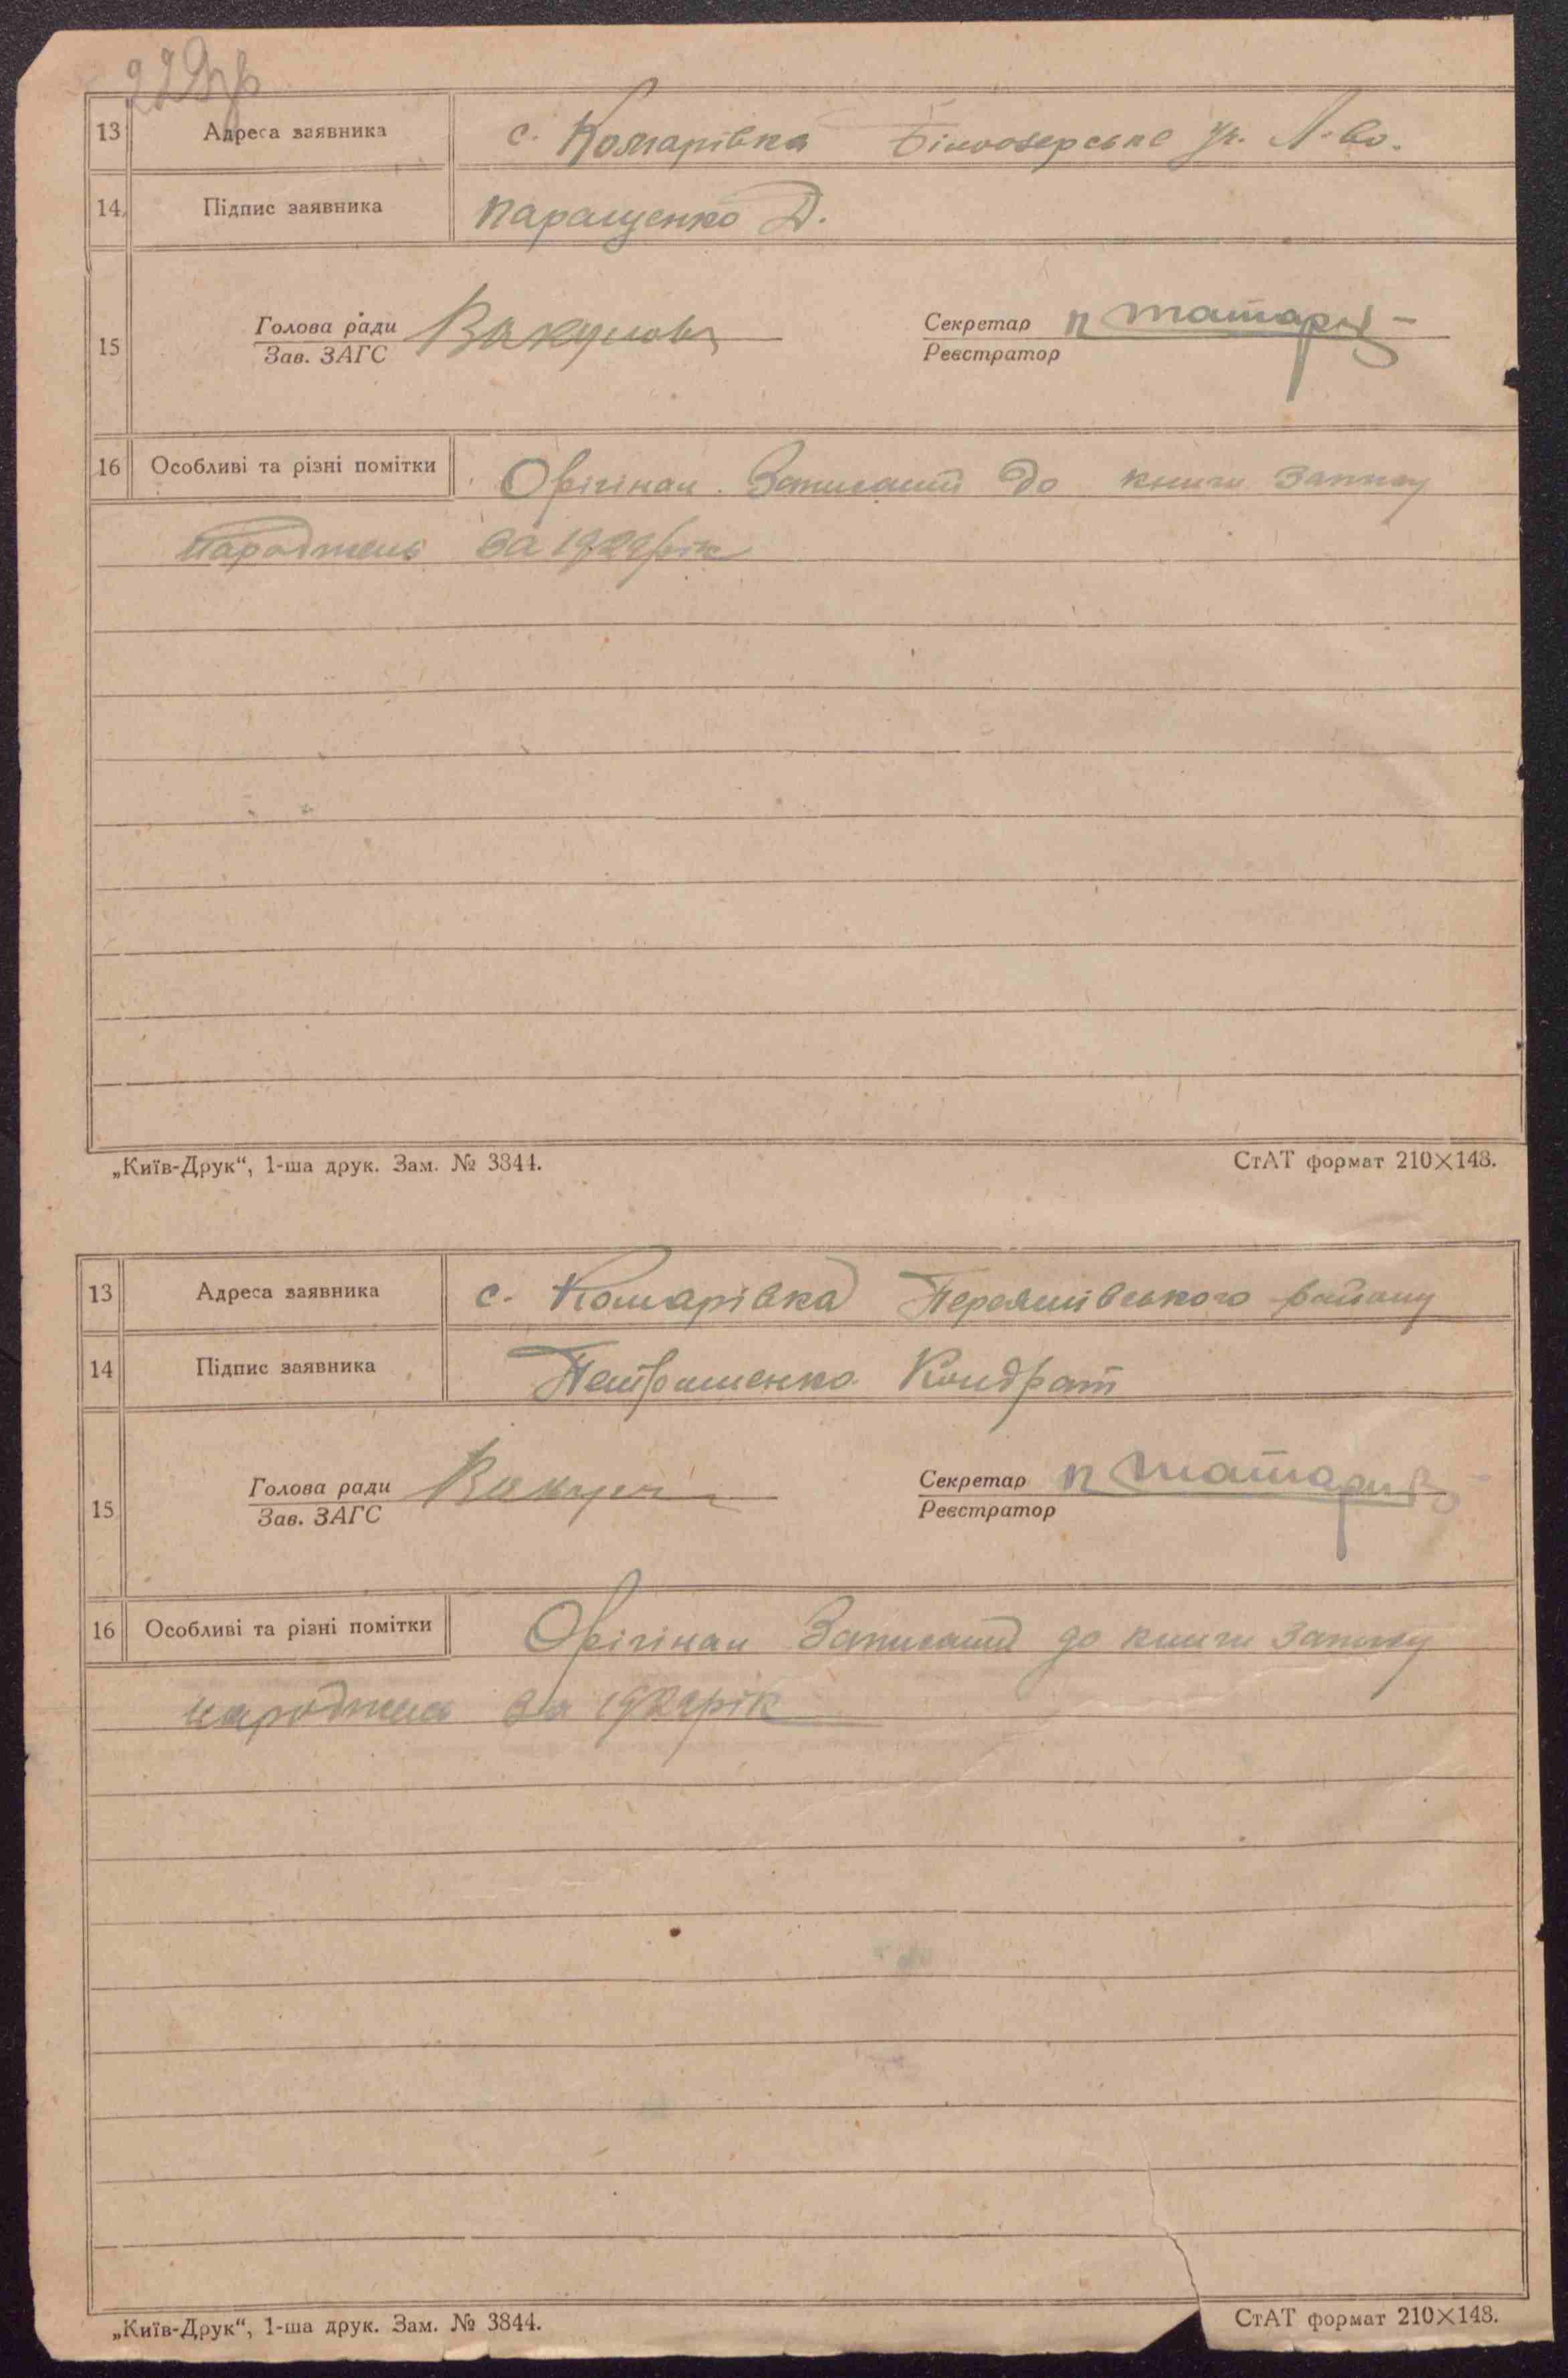 229зв
13 Адреса заявника с. Комарівка Білоозерське уч. Л-во.
14 Підпис заявника Паращенко Д.
15 Голова ради Секретар
Зав. ЗАГС Реєстратор
16 Особливі та різні помітки Орігінал. Записаний до книги запису
народжень за 1929 рік
„Київ-Друк“, 1-ша друк. Зам. № 3844. СтАТ формат 210×148.
13 Адреса заявника с. Комарівка Переяславського району
14 Підпис заявника Кондрат
15 Голова ради Секретар
Зав. ЗАГС Реєстратор
16 Особливі та різні помітки Орігінал Записаний до книги запису
народжень за 1929 рік
„Київ-Друк“, 1-ша друк. Зам. № 3844. СтАТ формат 210×148.